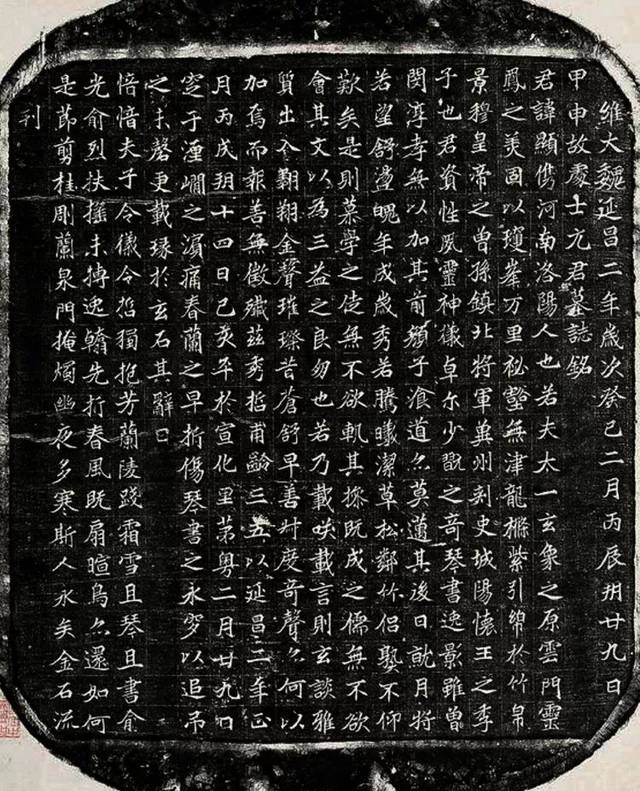 維大魏延昌二年歲次癸巳二月丙辰朔廿九日
甲申故處士元君墓誌銘
君諱顯儁河南洛陽人也若夫太一玄象之原雲門靈
鳳之美固以瓊峯万里秘壑無津龍檦紫引綿於竹帛
景穆皇帝之曾孫鎮北將軍冀州刾史城陽懷王之季
子也君資性夙靈神儀卓尔少翫之奇琴書逸影雖曾
閔淳孝無以加其前顏子飡道亦莫邁其後日就月將
若望舒盪魄年成歲秀若騰曦潔草松鄰竹侶熟不仰
歎矣是則慕學之徒無不欲軌其操既成之儒無不欲
會其文以為三益之良朋也若乃載咲載言則玄談雅
質出入翱翔金聲璀璨昔蒼舒早善叶慶奇聲亦何以
加焉而報善無徵殲茲秀哲甫齡三五以延昌二年正
月丙戌朔十四日己亥卒於宣化里第粵二月廿九日
窆于瀍澗之濱痛春蘭之早折傷琴書之永穸以追吊
之未磬更載琭於玄石其辭曰
愔愔夫子令儀令哲獨抱芳蘭陵踐霜雪且琴且書俞
光俞烈扶搖未搏逸翰先折春風既扇暄鳥亦還如何
是節剪桂剛蘭泉門掩燭幽夜多寒斯人永矣金石流
刊